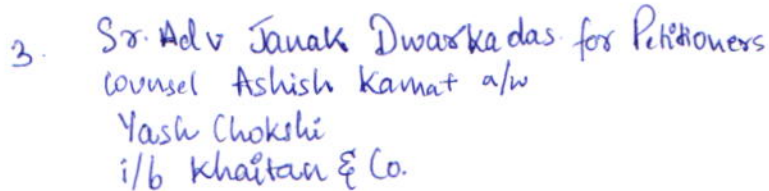 3. Sr. Adv Janak Dwarkadas for Petitioners
counsel Ashish Kamat a/w
Yash Chokshi
i/b Khaitan & Co.